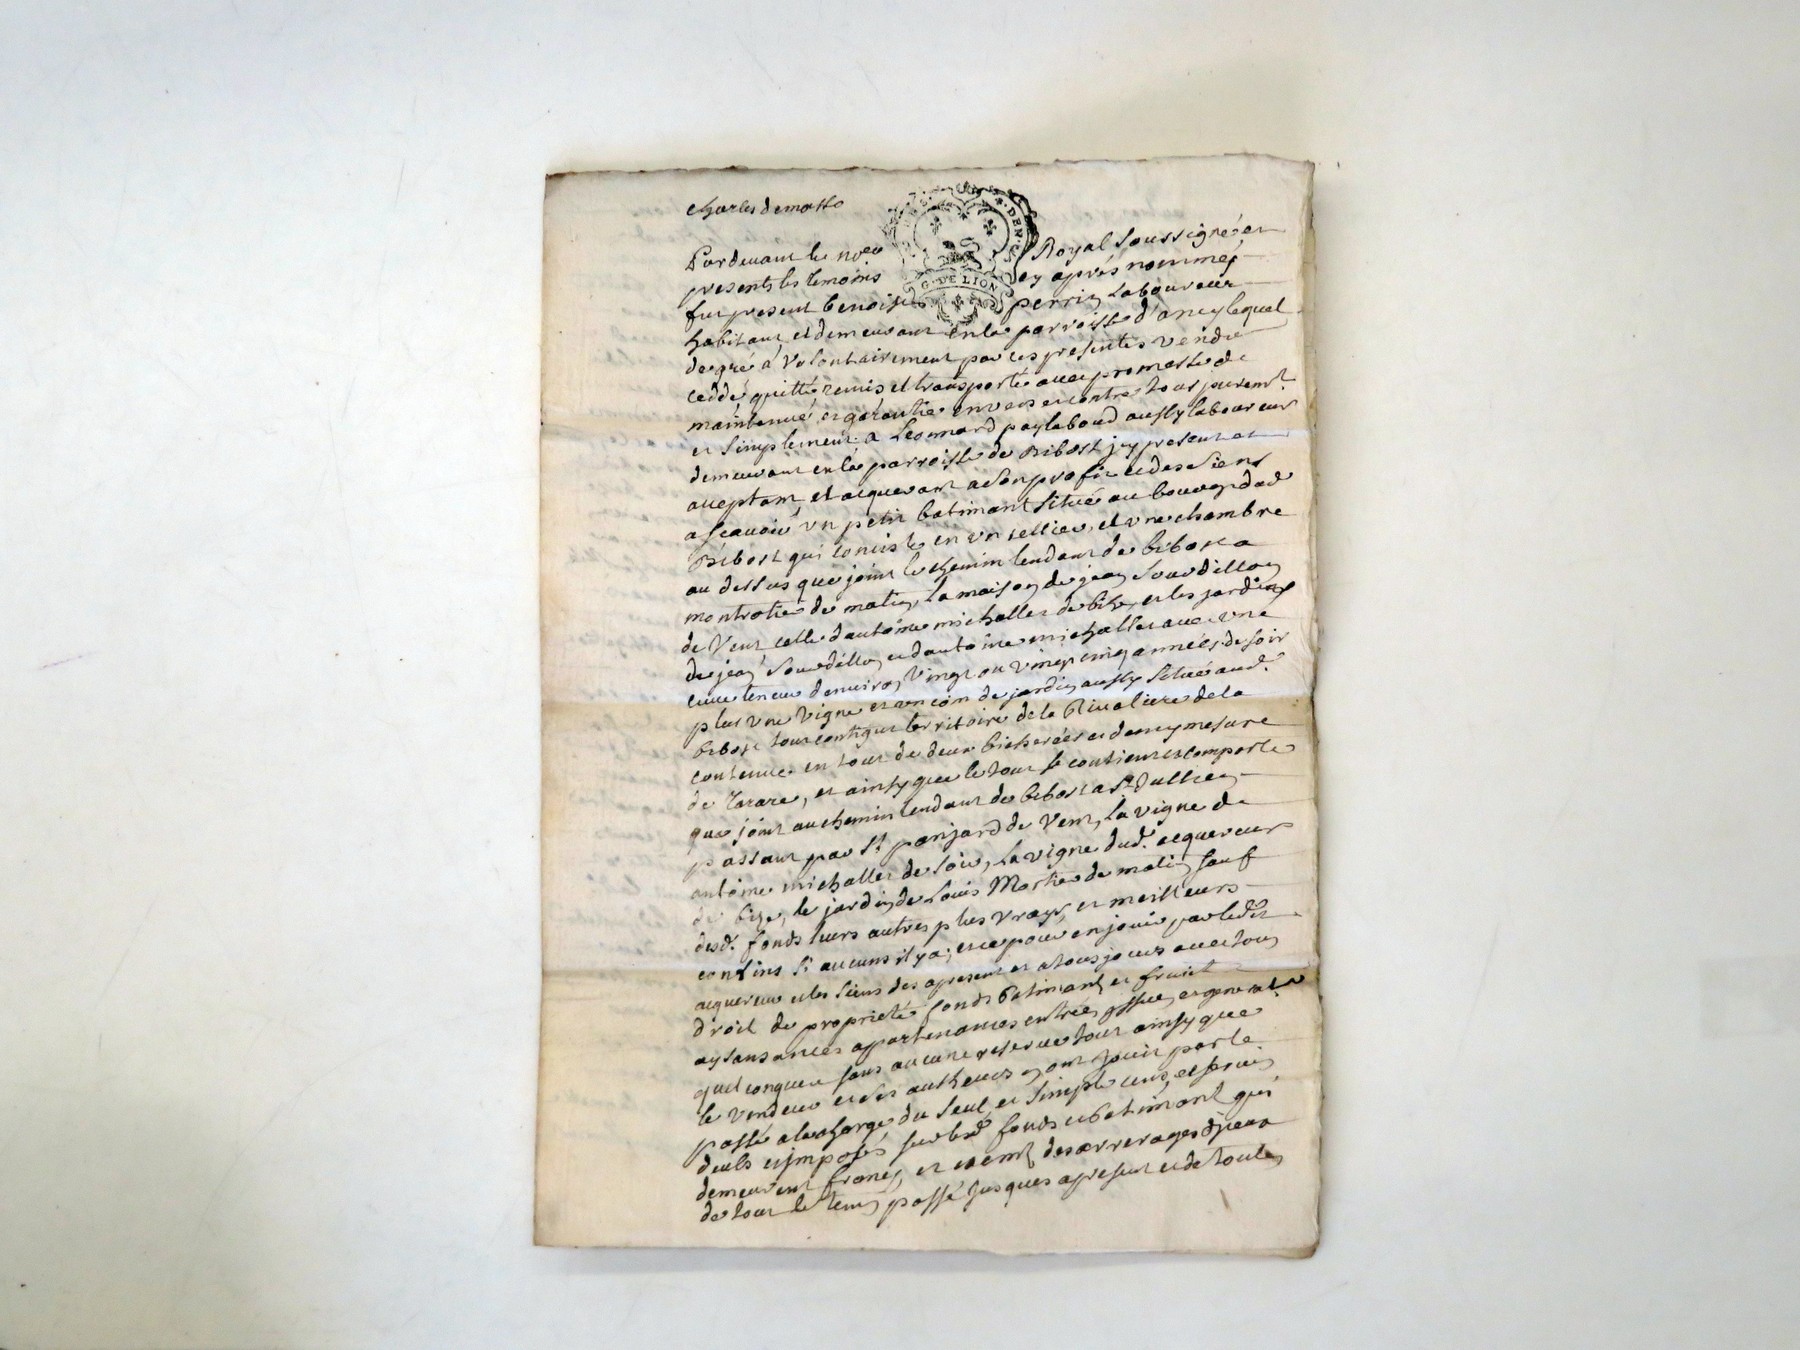 Charles demotto
G. DE LION
Pardevant le no.re Royal soussigné et
presents les temoins cy aprés nommés
fut present Benoist perrin Laboureur
habitant et demeurant en la parroisse d'ancy lequel
de gré à volontairement par ces presentes vendu
ceddé, quitté, remis et transporté avec promesse de
maintenue et garantie envers et contre tous purem.t
et simplement a Leonnard peylaboud aussy laboureur
demeurant en la parroisse de Bibost jcy present et
acceptant, et acquerant a son profit et des siens
a scavoir un petit batimant situé au bourg dud.
Bibost qui consiste en un cellier, et une chambre
au dessus que joint le chemin tendant de bibost a
montrotier de matin, la maison de jean Sourdillon
de Vent, celle d'antoine michallet de bize, et les jardins
de jean Sourdillon et d'antoine michallet avec une
d'environ vingt ou vingt cinq années, de soir
plus une vigne et un coin de jardin aussy situé aud.
bibost tout contigu territoire de la Rivaliere de la
contenue en tout de deux bicherées et demy mesure
de Tarare, et ainsy que le tout se contient et comporte
que joint au chemin tendant de bibost a St Jullien
passant par St ponjard de Vent, la vigne de
antoine michallet de soir, la vigne dud. acquereur
de bize, le jardin de Louis Mortier de matin sauf
desd. fonds leurs autres plus vrays, et meilleurs
confins si aucuns il y a; et ce pour en jouir par led.
acquereur et les siens des apresent et a tousjours avec tous
droit de proprieté fonds batimant, et fruict
aysances apartenances entrées yssues, et general.
quelconque sans aucune reserve tout ainsy que
le vendeur et ses autheurs en ont jouir par le
passé a la charge du seul, et simple cens, et servis
deubs et jmposés sur led. fonds et batimant qui
demeurent francs, et exempt des arrerages d'jceux
de tout le tems passé jusques apresent et de toutes